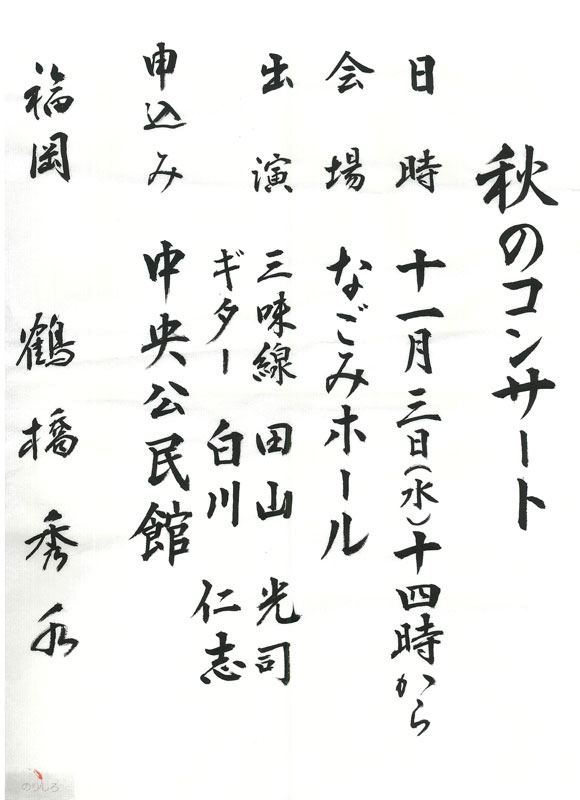 秋のコンサート
日時 十一月三日(水)十四時から
会場 なごみホール
出演 三味線 田山 光司
ギター 白川 仁志
申込み 中央公民館
福岡 鶴橋秀水
のりしろ